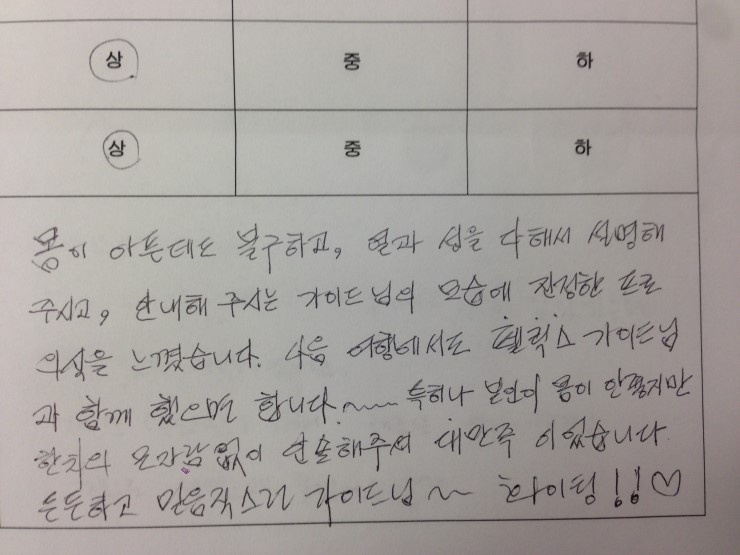 상 중 하
상 중 하
몸이 아픈데도 불구하고, 열과 성을 다해서 설명해
주시고, 안내해 주시는 가이드님의 모습에 진정한 프로
의식을 느꼈습니다. 다음 여행에서도 펠릭스 가이드님
과 함께 했으면 합니다.~ 특히나 본인이 몸이 안좋지만
한치의 모자람 없이 인솔해주셔 대만족 이었습니다.
든든하고 믿음직스런 가이드님~ 화이팅!!♡